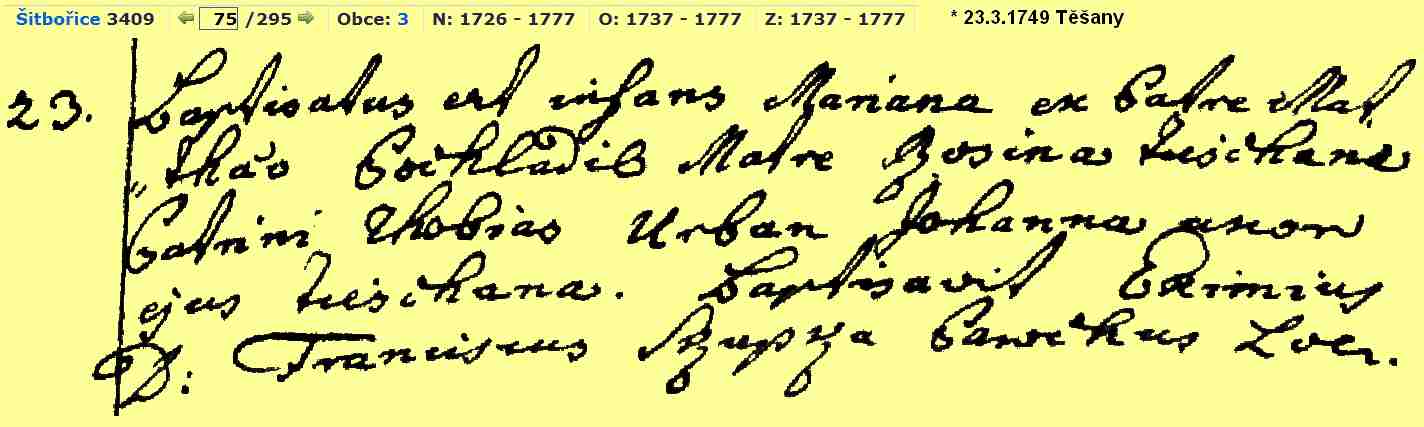 Šitbořice 3409 75 /295 Obce: 3 N: 1726 - 1777 O: 1737 - 1777 Z: 1737 - 1777 * 23.3.1749 Těšany
23. Baptisatus est infans Mariana ex Patre Mat
"thæo Matre Rosina
Patrini Thobias Urban Johanna uxor
ejus Baptisavit Eximius
D: Franciscus Parochus Loci.